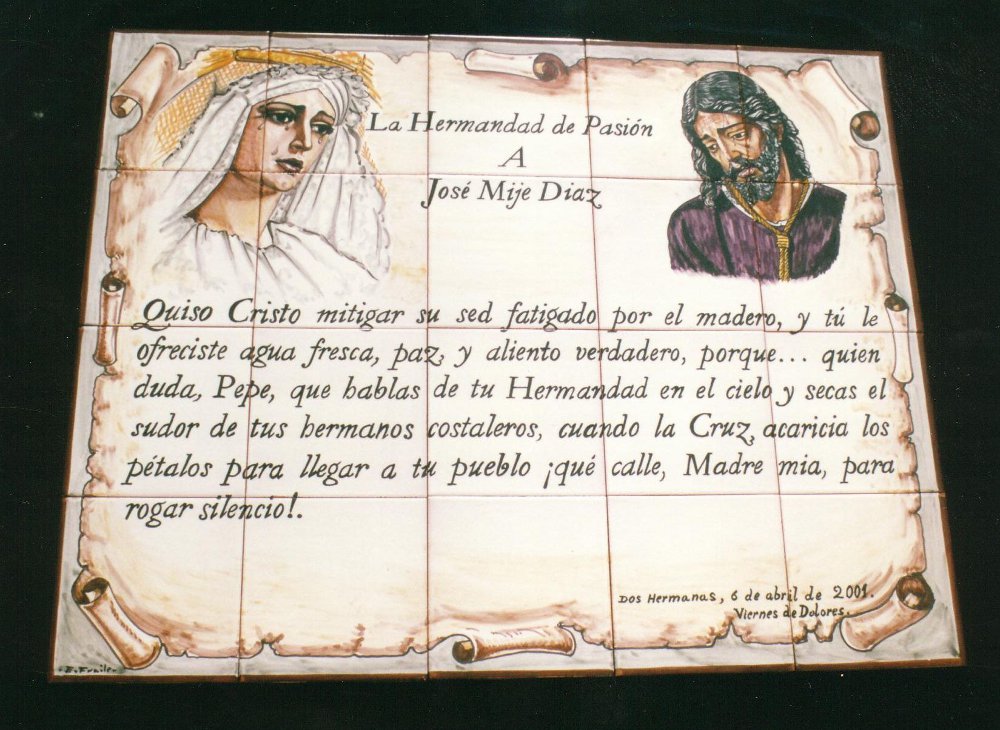 La Hermandad de Pasión
A
José Mije Diaz
Quiso Cristo mitigar su sed fatigado por el madero, y tú le
ofreciste agua fresca, paz, y aliento verdadero, porque... quien
duda, Pepe, que hablas de tu Hermandad en el cielo y secas el
sudor de tus hermanos costaleros, cuando la Cruz, acaricia los
pétalos para llegar a tu pueblo ¡qué calle, Madre mia, para
rogar silencio!.
Dos Hermanas, 6 de abril de 2001.
Viernes de Dolores.